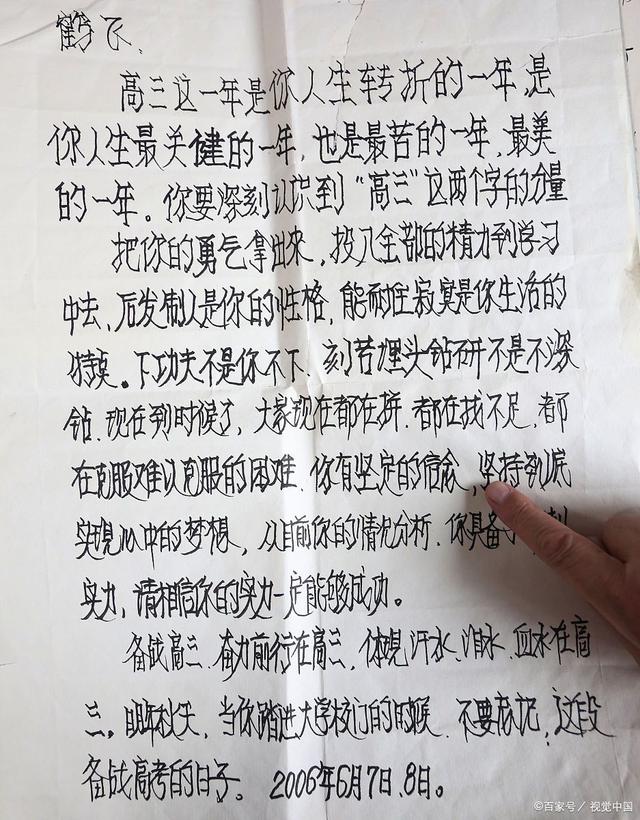 鹤飞、
高三这一年是你人生转折的一年,是
你人生最关健的一年,也是最苦的一年,最美
的一年。你要深刻认识到“高三”这两个字的分量
把你的勇气拿出来,投入全部的精力到学习
中去、后发制人是你的性格,能耐住寂寞是你生活的
特莫。下功夫不是你不下、刻苦埋头钻研不是不深
钻、现在到时候了,大家现在都在拼、都在找不足、都
在克服难以克服的困难、你有坚定的信念,坚持到底
实现心中的梦想,从目前你的情况分析、你具备
实力,请相信你的实力一定能够成功。
备战高三、奋力前行在高三,体现汗水、泪水、血水在高
三。明年秋天、当你踏进大学校门的时候、不要忘记,这段
备战高考的日子。2006年6月7日、8日。
©百家号/视觉中国